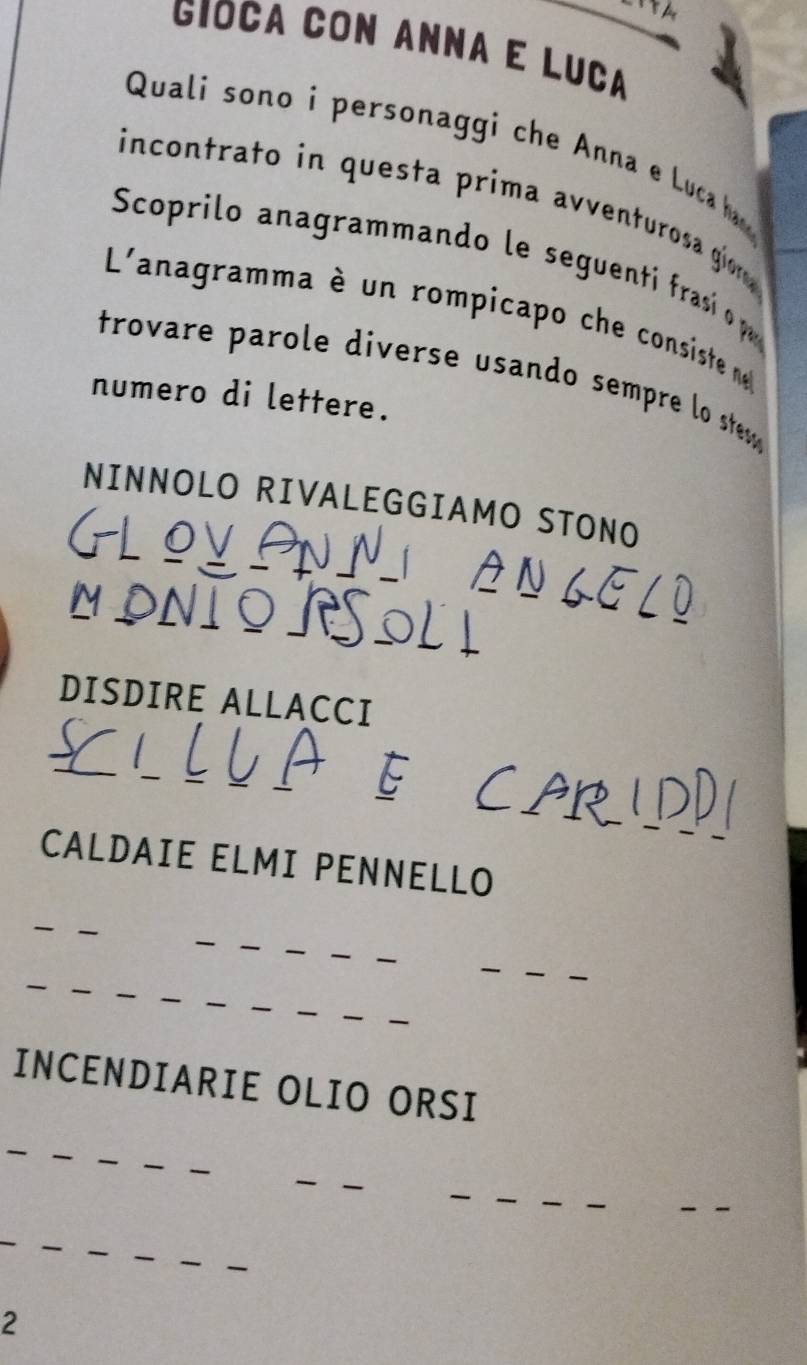 GIOCA CON ANNA E LUCA
Quali sono i personaggi che Anna e Luca
incontrato in questa prima avventurosa
Scoprilo anagrammando le seguenti frasi o
L'anagramma è un rompicapo che consiste nel
trovare parole diverse usando sempre lo stesso
numero di lettere.
NINNOLO RIVALEGGIAMO STONO
GIOVANNI ANGELO
MONTORSOLI
DISDIRE ALLACCI
SCILLA E CARIDDI
CALDAIE ELMI PENNELLO
INCENDIARIE OLIO ORSI
2